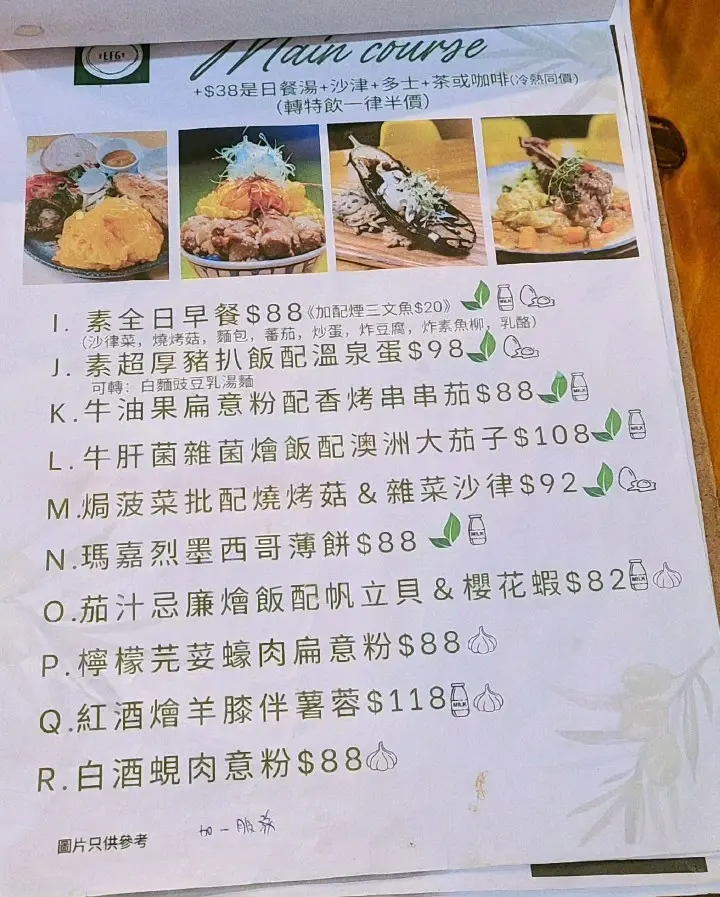 Main course
+$38是日餐湯+沙津+多士+茶或咖啡(冷熱同價)
(轉特飲一律半價)
I. 素全日早餐$88《加配煙三文魚$20》
(沙律菜, 燒烤菇, 麵包, 蕃茄, 炒蛋, 炸豆腐, 炸素魚柳, 乳酪)
J. 素超厚豬扒飯配溫泉蛋$98
可轉: 白麵豉豆乳湯麵
K.牛油果扁意粉配香烤串串茄$88
L.牛肝菌雜菌燴飯配澳洲大茄子$108
M.焗菠菜批配燒烤菇&雜菜沙律$92
N.瑪嘉烈墨西哥薄餅$88
O.茄汁忌廉燴飯配帆立貝&櫻花蝦$82
P.檸檬芫荽蠔肉扁意粉$88
Q.紅酒燴羊膝伴薯蓉$118
R.白酒蜆肉意粉$88
圖片只供參考
加一服務